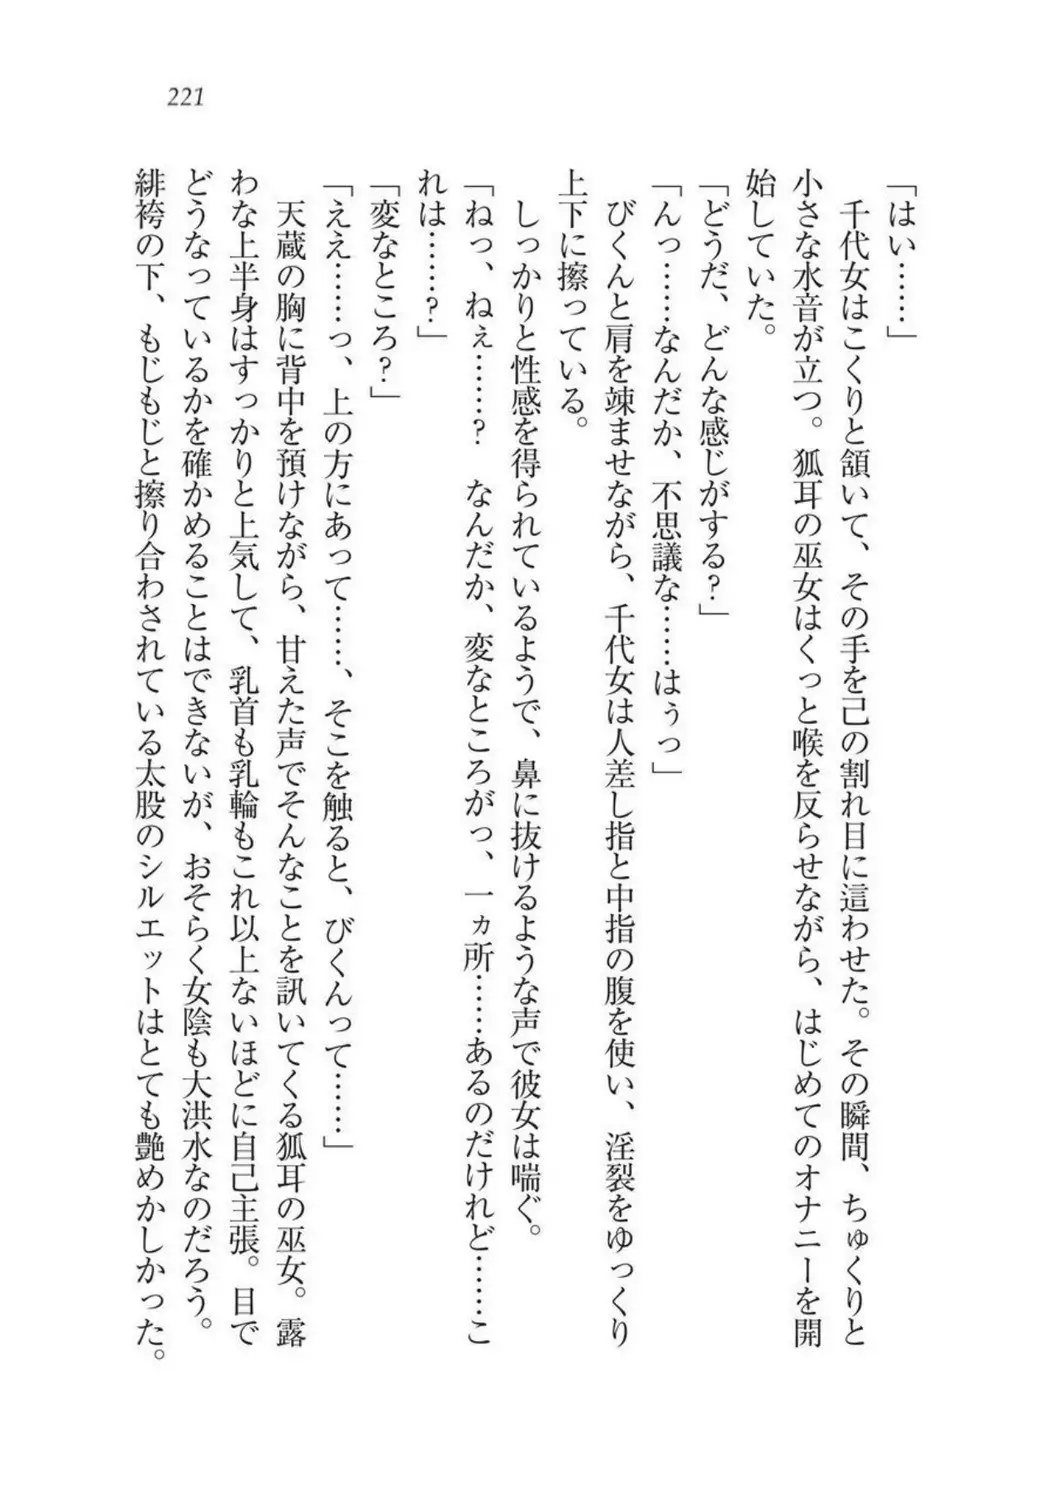 221
「はい……」
　千代女はこくりと頷いて、その手を己の割れ目に這わせた。その瞬間、ちゅくりと
小さな水音が立つ。狐耳の巫女はくっと喉を反らせながら、はじめてのオナニーを開
始していた。
「どうだ、どんな感じがする？」
「んっ……なんだか、不思議な……はぅっ」
　びくんと肩を竦ませながら、千代女は人差し指と中指の腹を使い、淫裂をゆっくり
上下に擦っている。
　しっかりと性感を得られているようで、鼻に抜けるような声で彼女は喘ぐ。
「ねっ、ねぇ……？　なんだか、変なところがっ、一ヵ所……あるのだけれど……こ
れは……？」
「変なところ？」
「ええ……っ、上の方にあって……、そこを触ると、びくんって……」
　天蔵の胸に背中を預けながら、甘えた声でそんなことを訊いてくる狐耳の巫女。露
わな上半身はすっかりと上気して、乳首も乳輪もこれ以上ないほどに自己主張。目で
どうなっているかを確かめることはできないが、おそらく女陰も大洪水なのだろう。
緋袴の下、もじもじと擦り合わされている太股のシルエットはとても艶めかしかった。